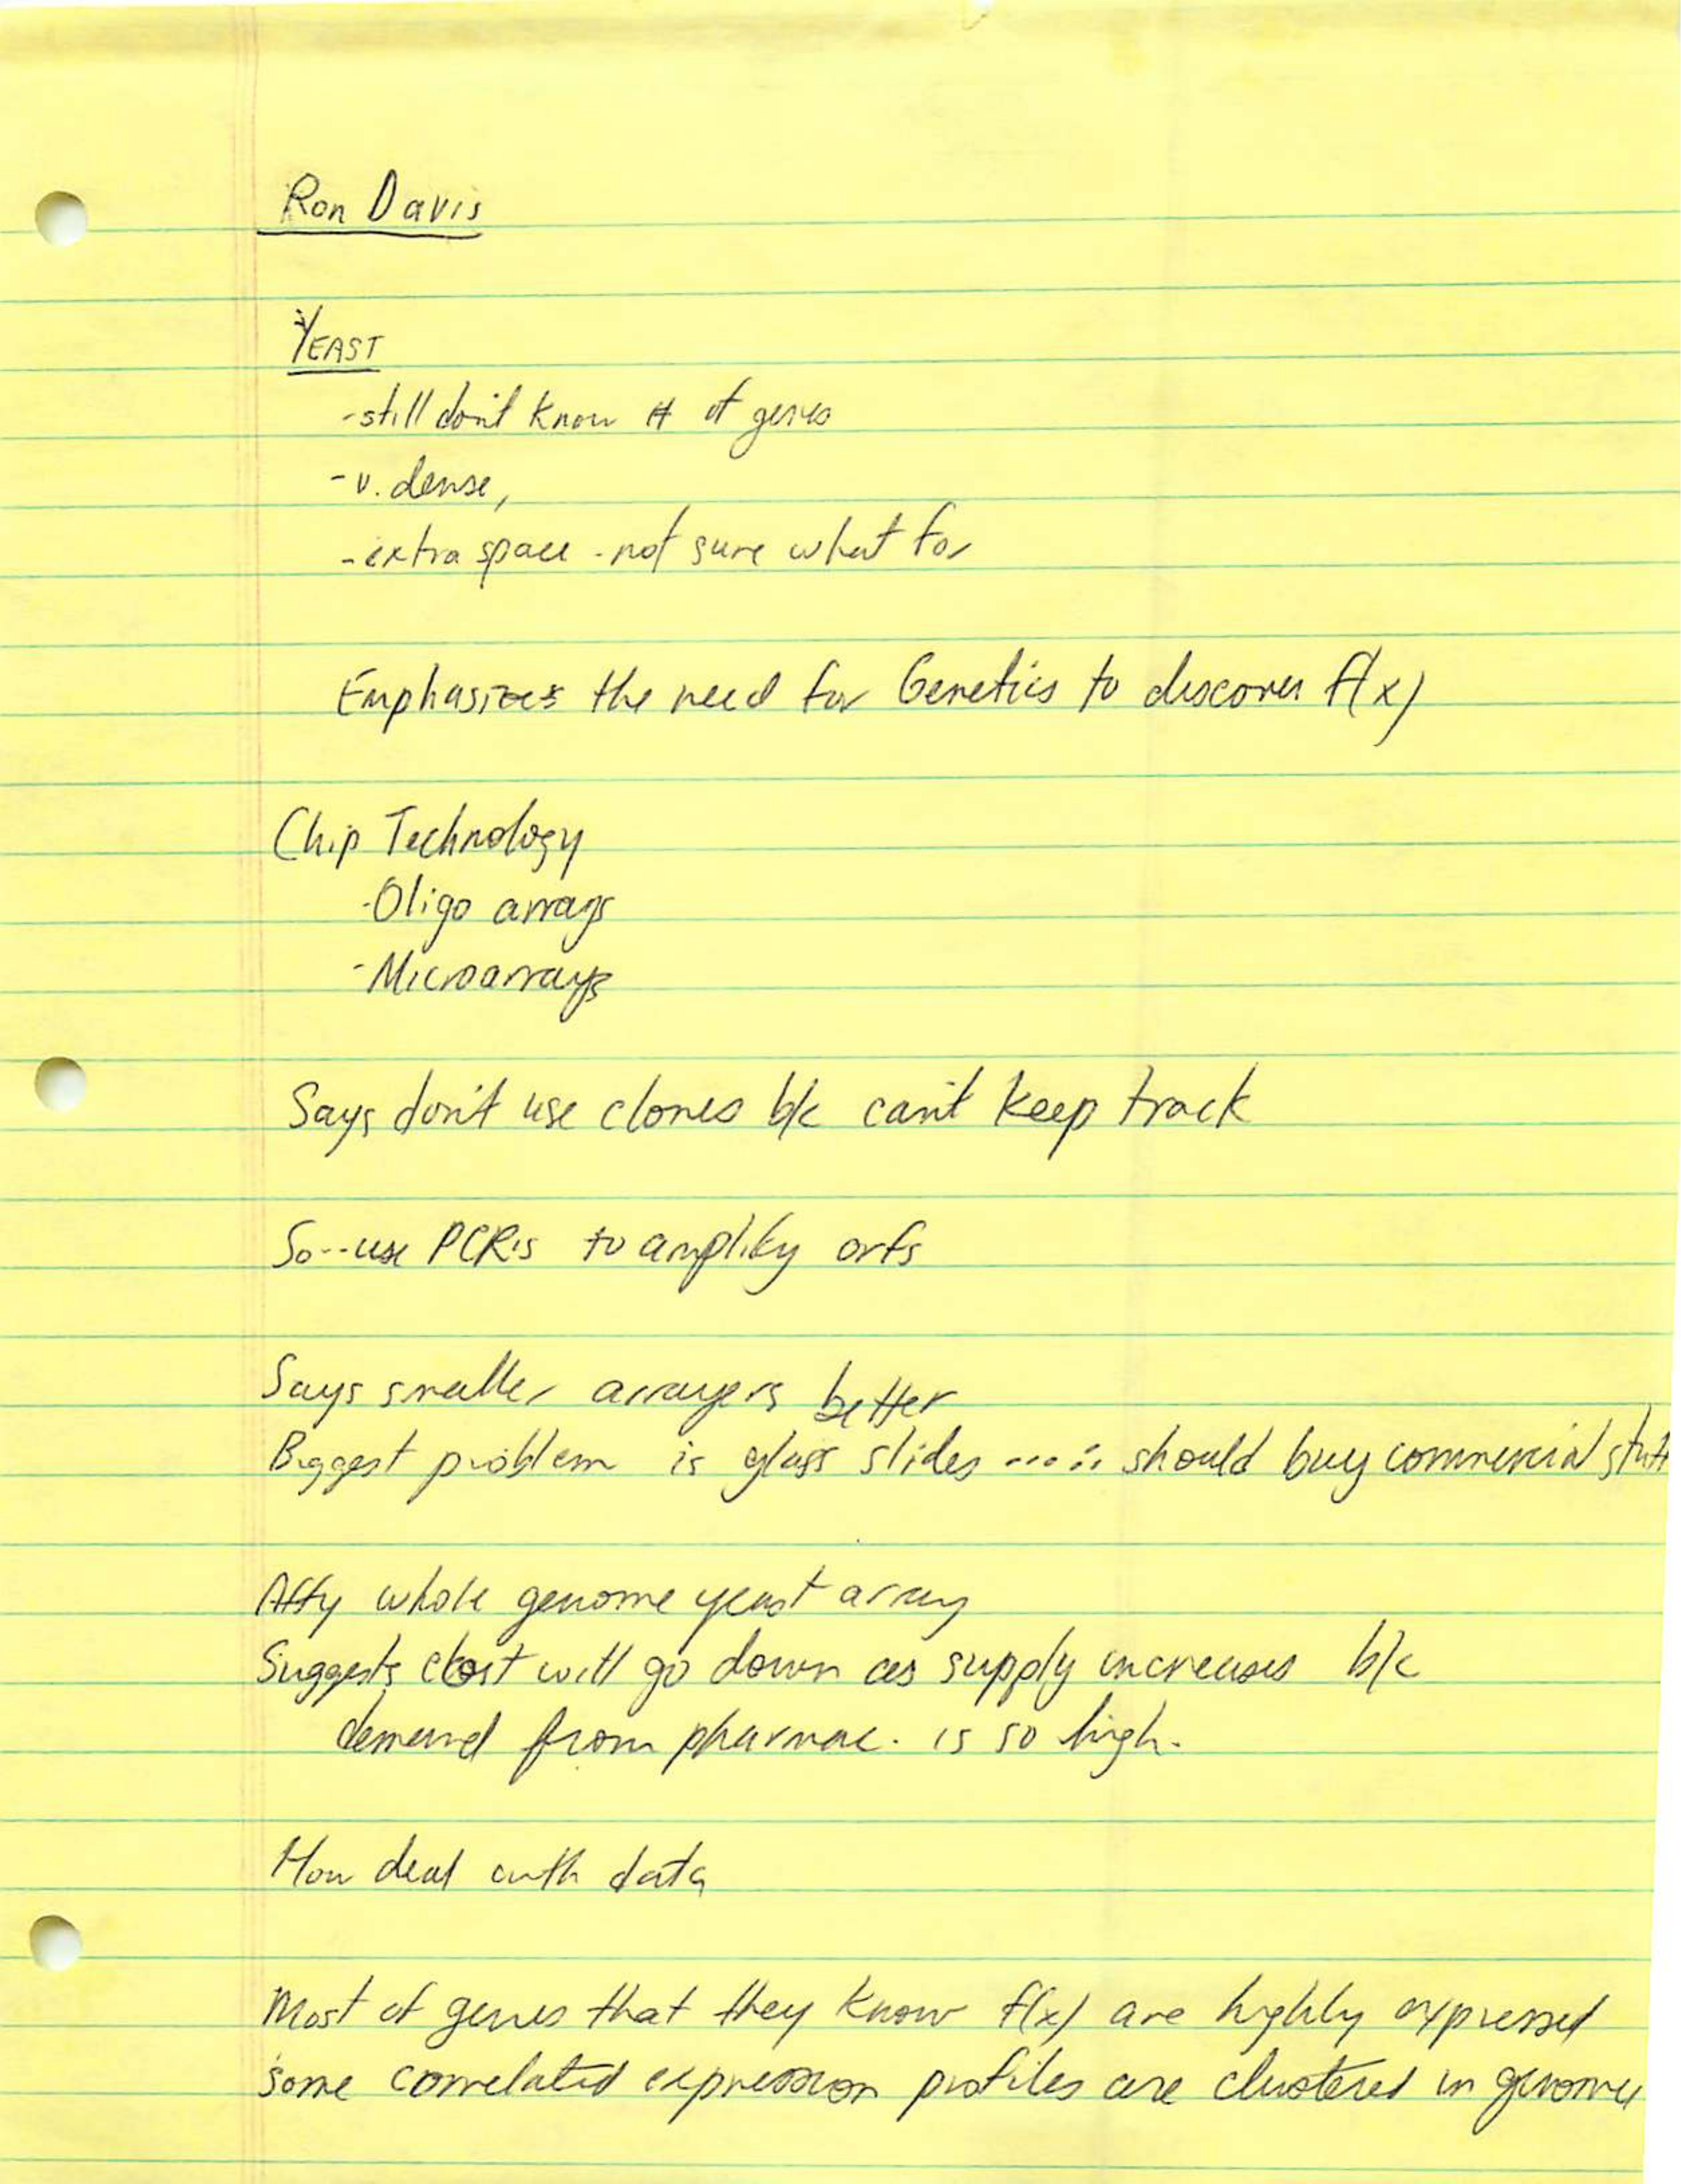 Ron Davis
YEAST
-still don't know # of genes
-v. dense,
-extra space - not sure what for
Emphasizes the need for Genetics to discover f(x)
Chip Technology
-Oligo arrays
-Microarrays
Says don't use clones b/c can't keep track
So--use PCR's to amplify orfs
Says smaller arrayers better
Biggest problem is glass slides ....∴ should buy commercial stuff
Affy whole genome yeast array
Suggests cost will go down as supply increases b/c
demand from pharmac. is so high.
How deal with data
Most of genes that they know f(x) are highly expressed
some correlated expression profiles are clustered in genome